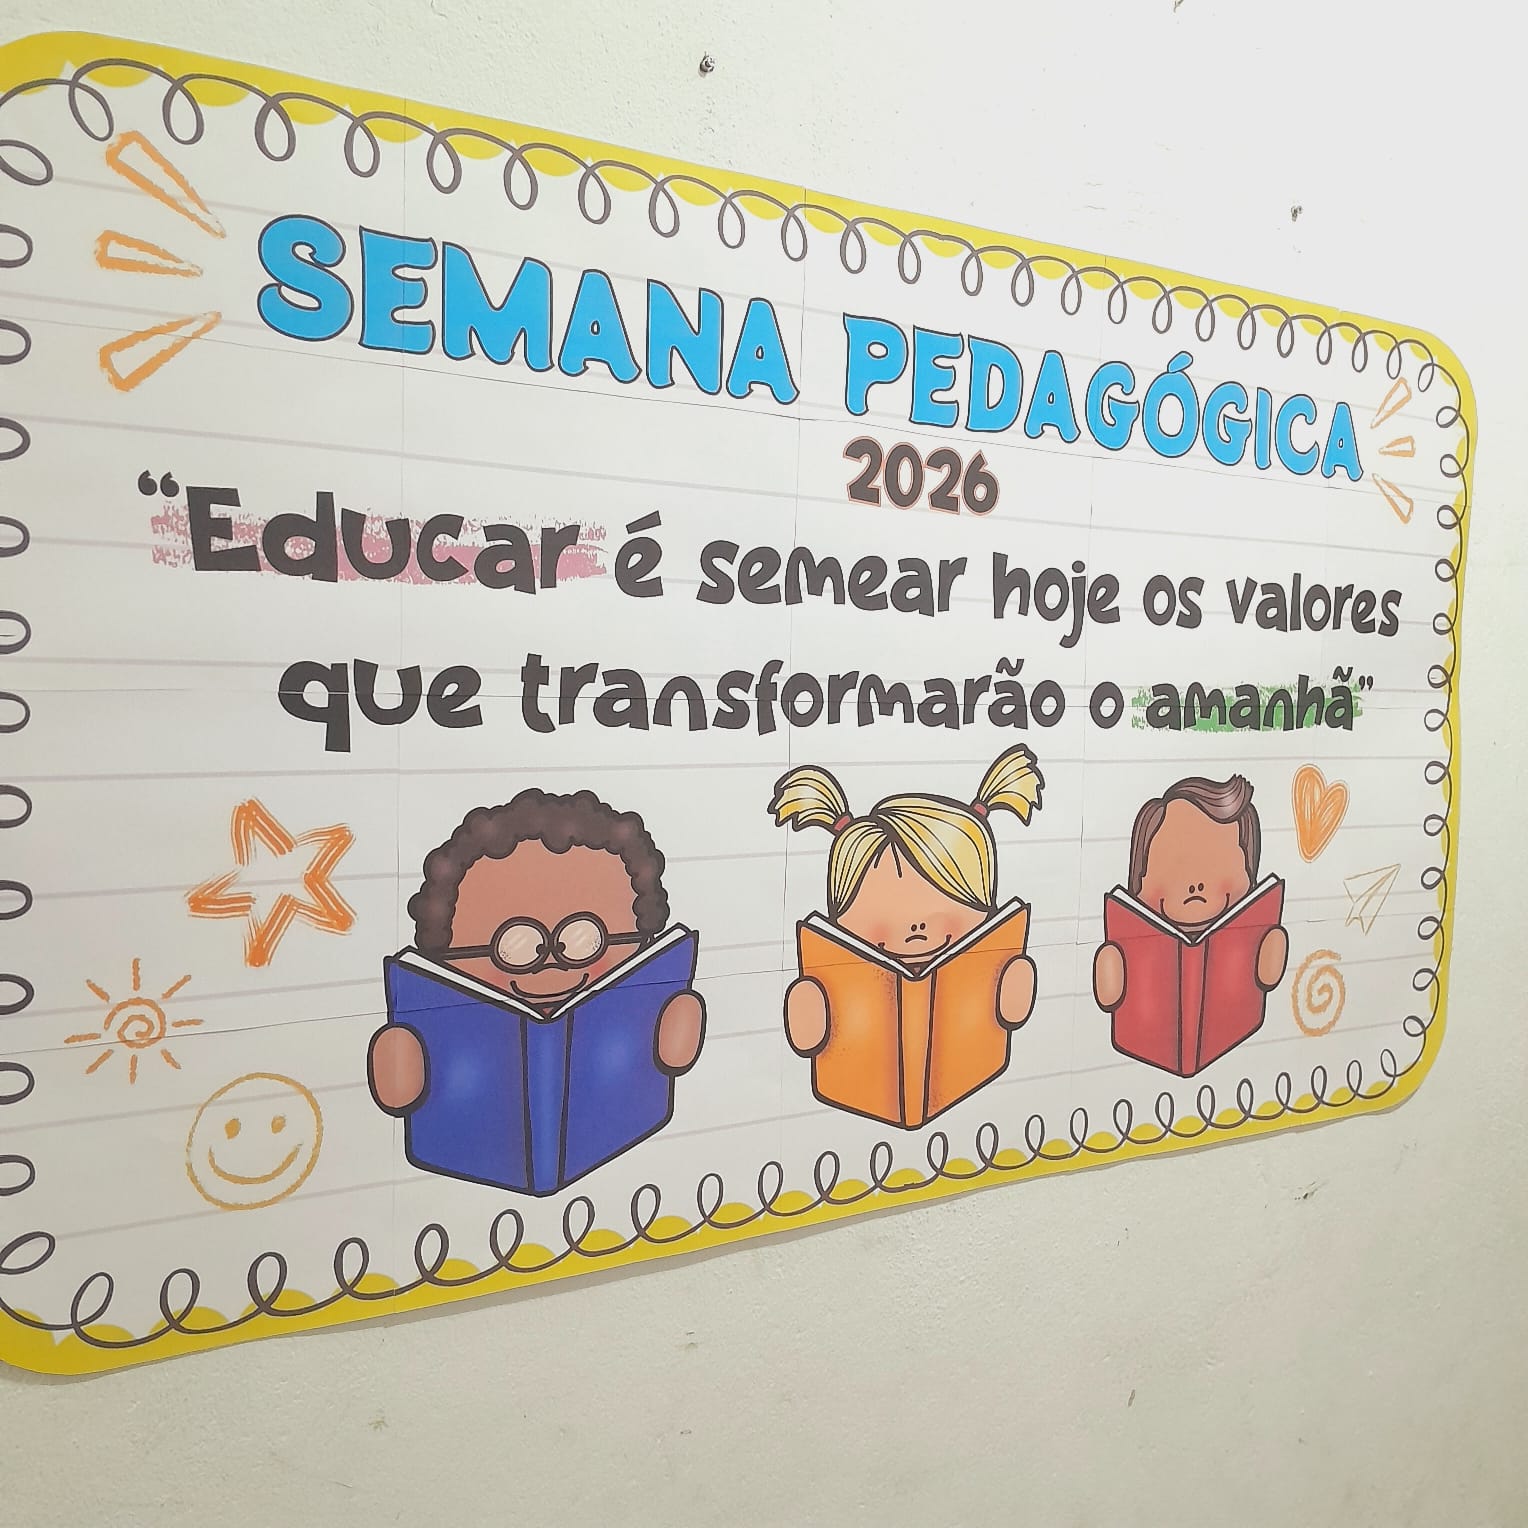 SEMANA PEDAGÓGICA
2026
“Educar é semear hoje os valores
que transformarão o amanhã”